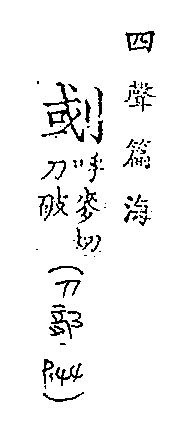 四聲篇海
㓰呼麥切
刀破
(刀部
P.44)